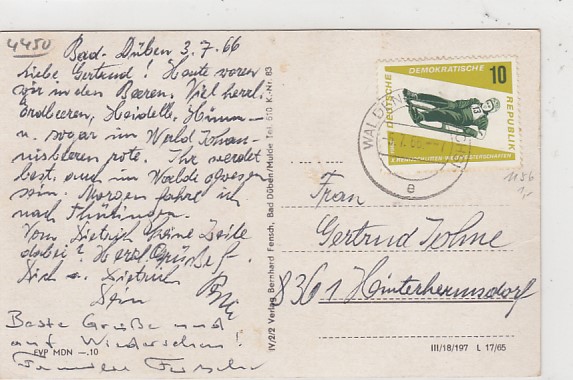 4450
Bad-Düben 3.7.66
Liebe Gertrud! Heute waren
wir in den Beeren. Viel herrl.
Erdbeeren, Heidelb., Himm-
u. sogar im Wald Johan-
nisbeeren rote. Ihr werdet
best. auch im Walde gewesen
sein. Morgen fahre ich
nach Thüringen.
Vom Dietrich keine Zeile
dabei? Herzl. Grüße f.
Dich u. Dietrich
Dein
Beste Grüße und
auf Wiedersehen!
EVP MDN —.10
Familie
IV/2/2 Verlag Bernhard Fensch, Bad Düben/Mulde Tel. 510 K.-Nr. 83
DEUTSCHE
DEMOKRATISCHE
REPUBLIK
10
X. RENNSCHLITTEN-WELTMEISTERSCHAFTEN
13
WALD
e
1156
1,-
Frau
Gertrud Johne
8361 Hinterhermsdorf
III/18/197 L 17/65